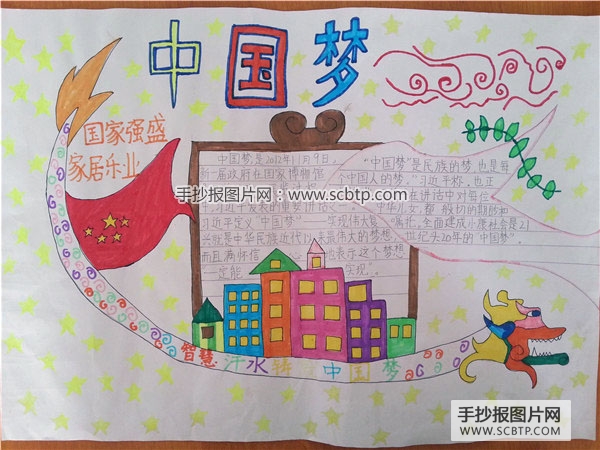 中国梦
国家强盛
家居乐业
中国梦是2012年11月9日
新一届政府在国家博物馆
习近平定义"中国梦"——实现伟大复
兴就是中华民族近代以来最伟大的梦想
而且满怀信 也表示这个梦想
一定能 实现。
"中国梦"是民族的梦，也是每
个中国人的梦。"习近平称，也正
在讲话中对每位
全面建成小康社会是21
世纪头20年的"中国梦"。
手抄报图片网——www.scbtp.com
智慧汗水 中国梦
手抄报图片网
WWW.SCBTP.COM